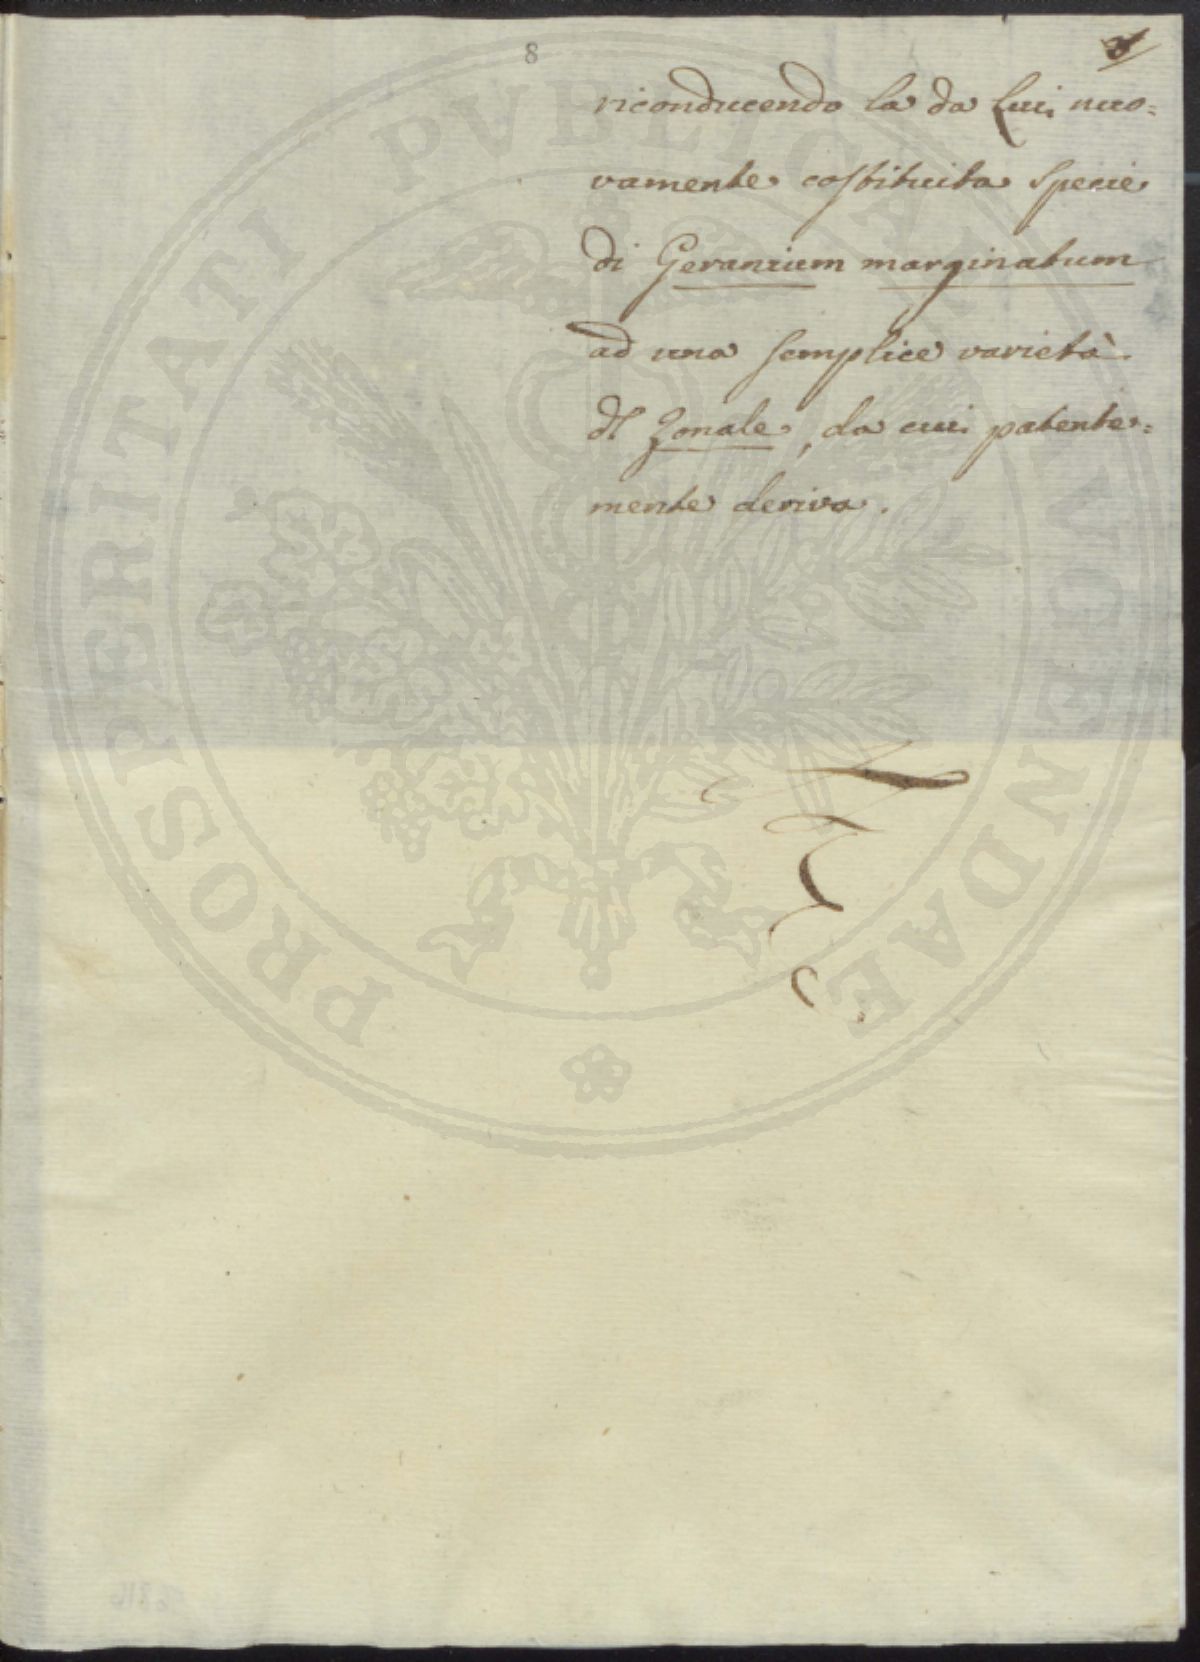 8
riconducendo la da Lui nuo=
vamente costituita Specie
di Geranium marginatum
ad una semplice varietà
dl Zonale, da cui patente=
mente deriva.
PROSPERITATI PVBLICAE AVGENDAE